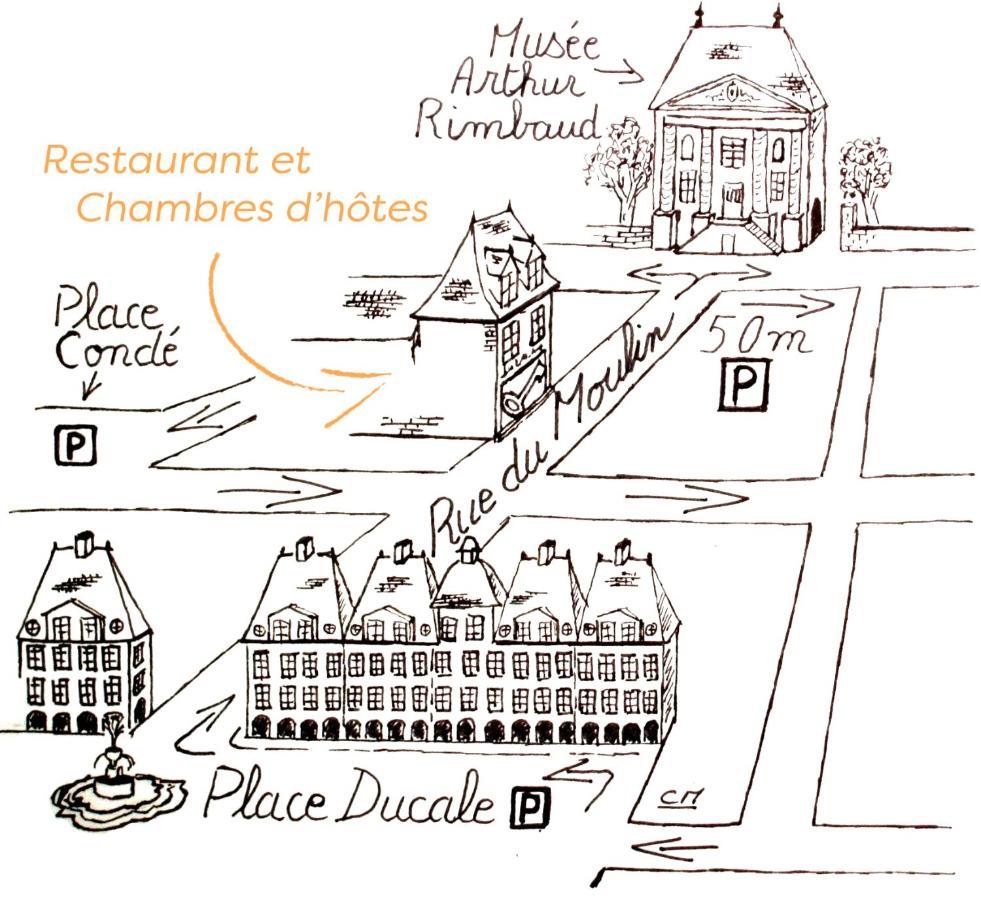 Musée
Arthur
Rimbaud
Restaurant et
Chambres d'hôtes
Place
Condé
P
50m
P
Rue du Moulin
Place Ducale P
CM